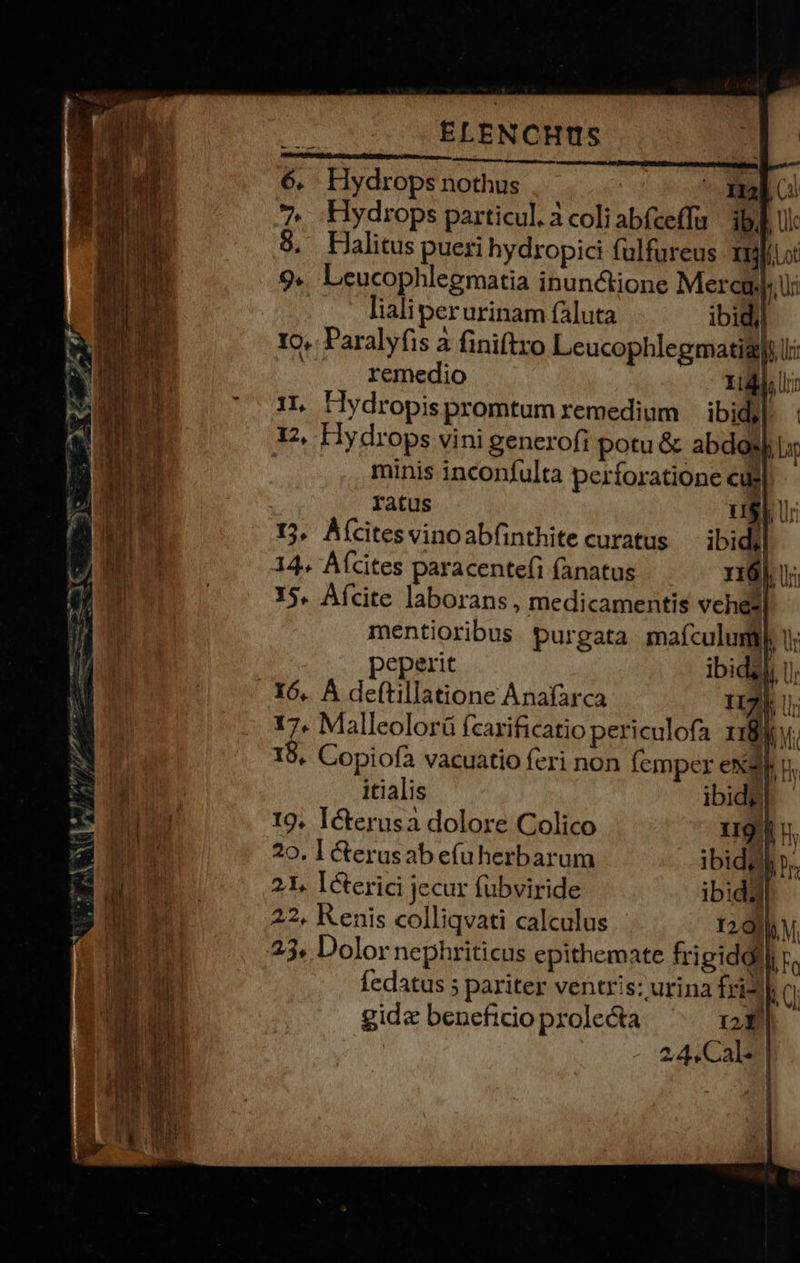 ELENCHUS
6. Hydrops nothus 112
7. Hydrops particul. à coli abſceſſu ib.
8. Halitus pueri hydropici ſulfureus 113
9. Leucophlegmatia inunctione Mercu-
liali per urinam ſaluta ibid.
10. Paralyſis à ſiniſtro Leucophlegmatiæ
remedio 114
11. Hydropis promtum remedium ibid.
12. Hydrops vini generoſi potu & abdo-
minis inconſulta perforatione cu-
ratus 115
13. Aſcites vino abſinthite curatus ibid.
14. Aſcites paracenteſi ſanatus 116
15. Aſcite laborans, medicamentis vehe-
mentioribus purgata maſculum
peperit ibid.
16. A deſtillatione Anaſarca 117
17. Malleolorū ſcarificatio periculoſa 118
18. Copioſa vacuatio ſeri non ſemper ex-
itialis ibid.
19. Icterus à dolore Colico 119
20. Icterus ab eſu herbarum ibid.
21. Icterici jecur ſubviride ibid.
22. Renis colliqvati calculus 120
23. Dolor nephriticus epithemate frigido
ſedatus ; pariter ventris: urina fri-
gidæ beneficio prolecta 121
24. Cal-